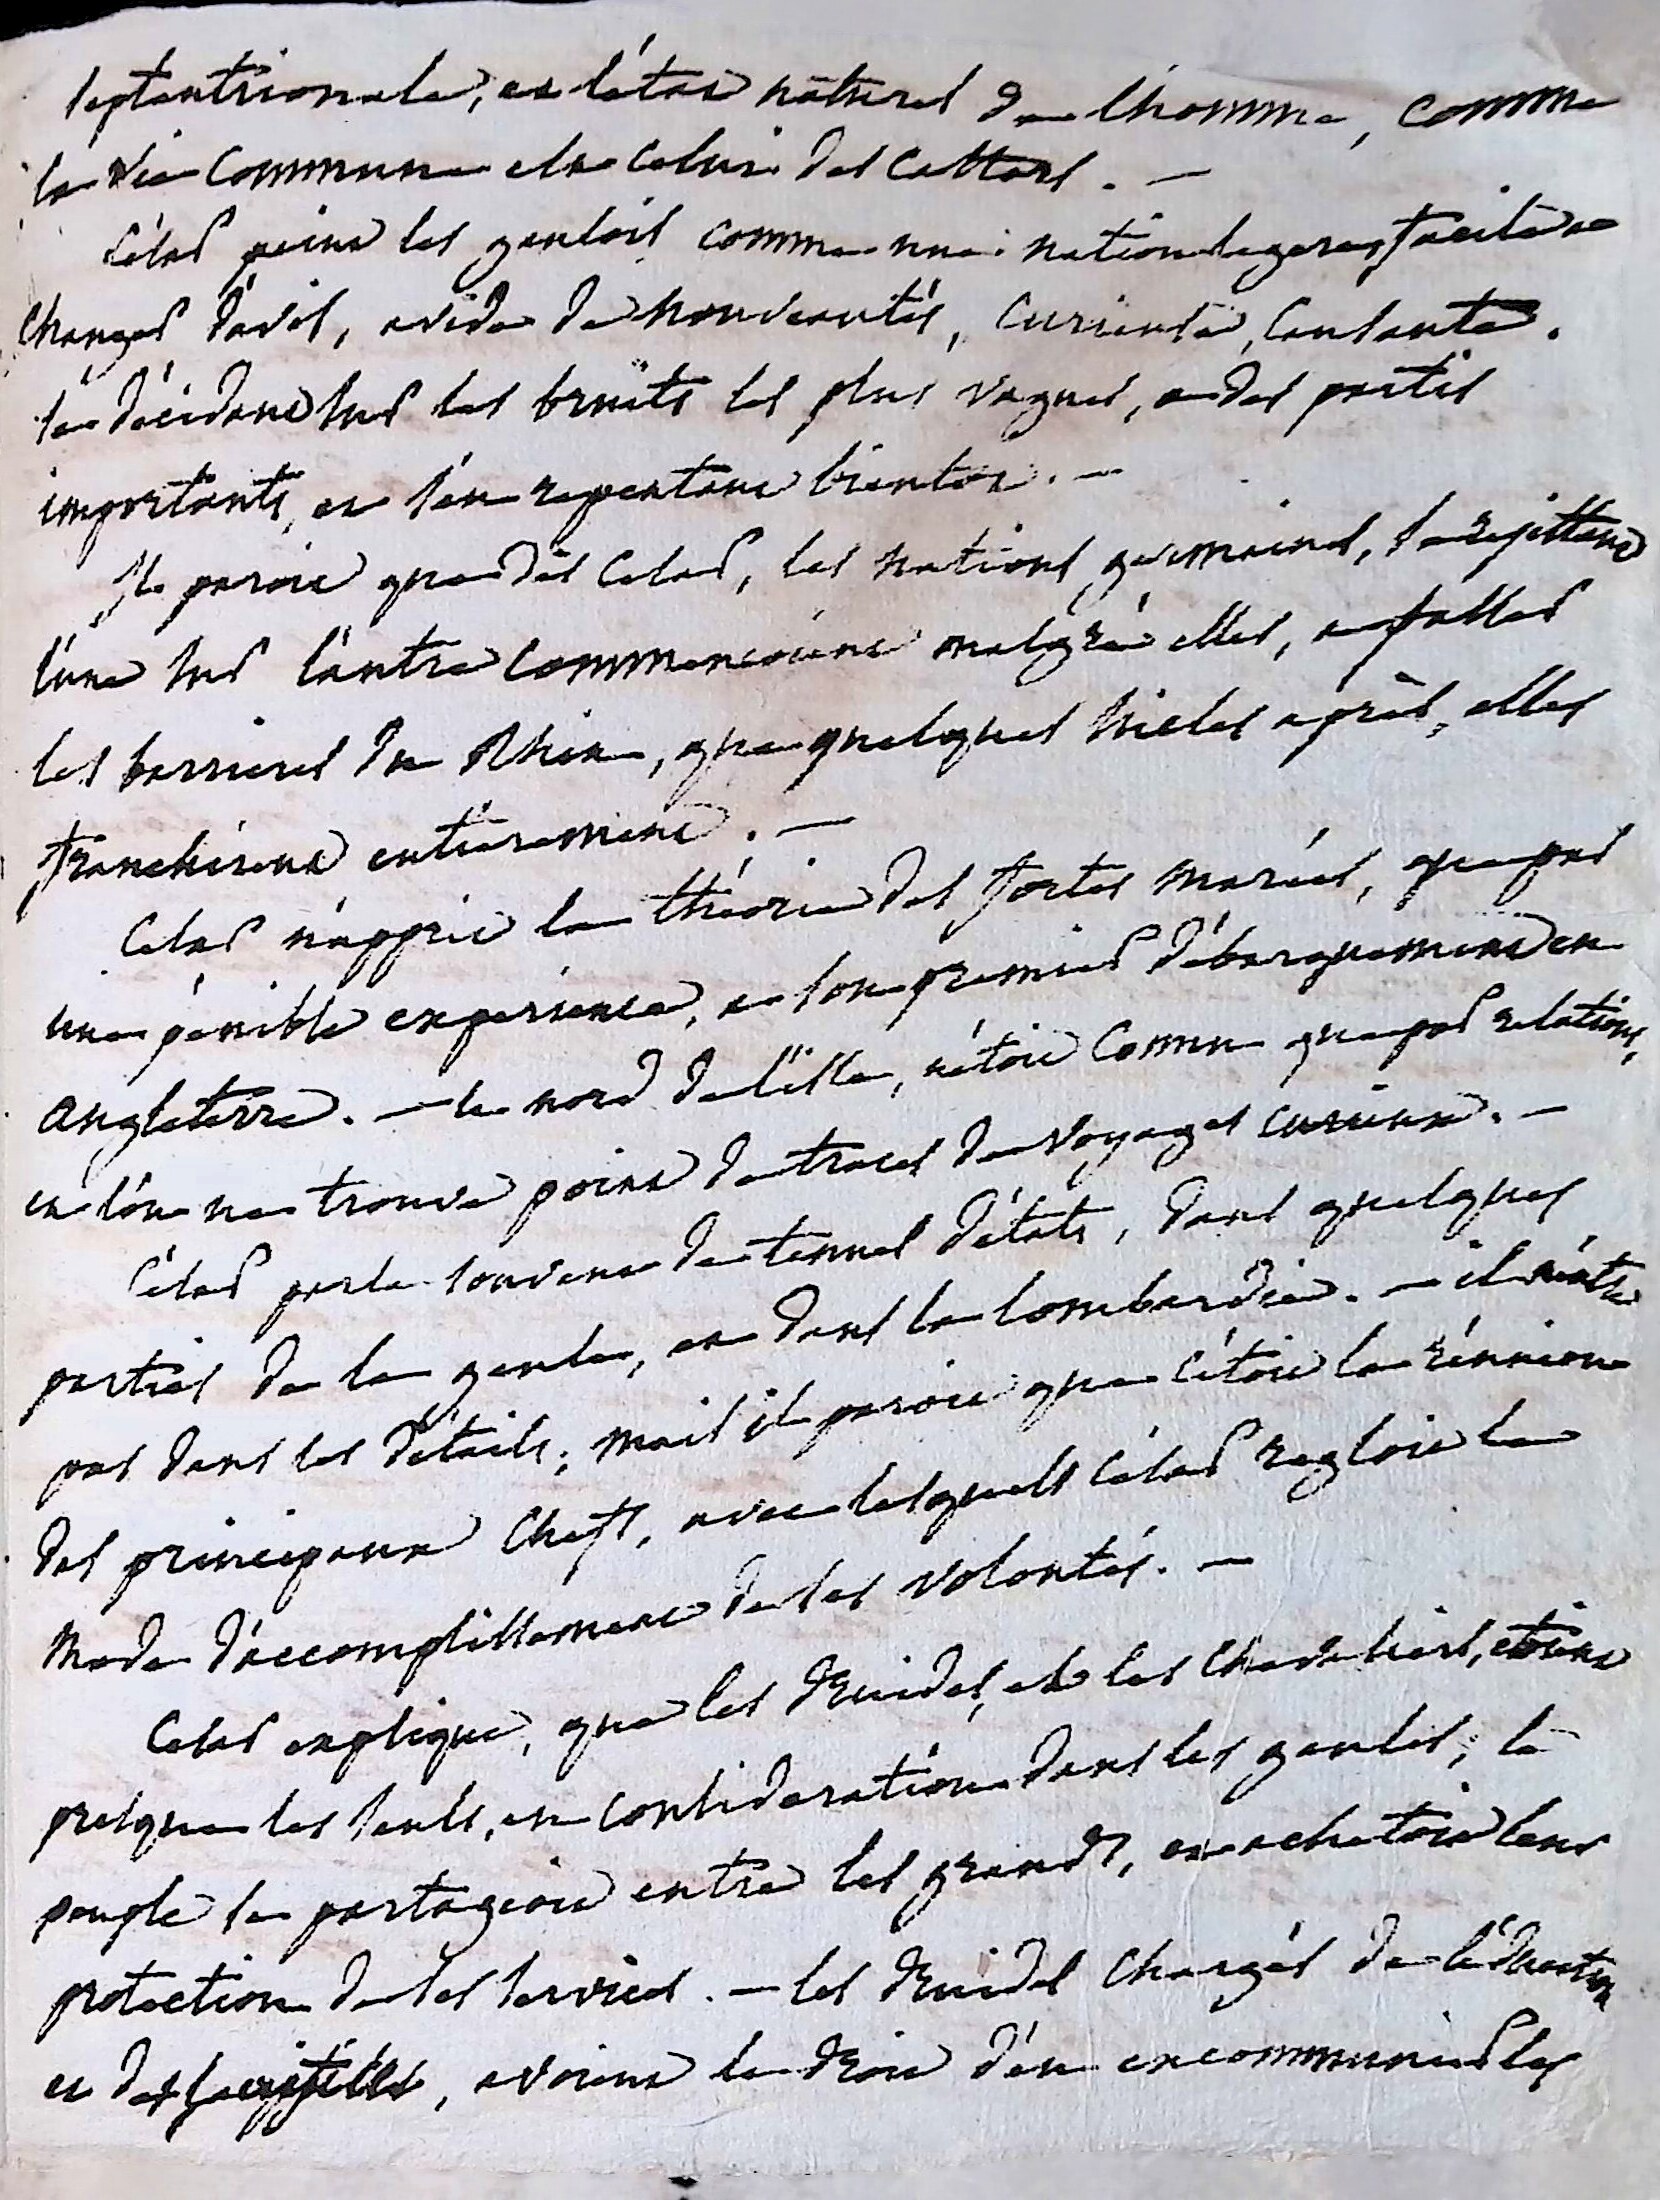 septentrionale, est l'état naturel de l'homme, comme
la vie commune est celui des castors. —
César peint les gaulois comme une nation legere, facile à
changer d'avis, avide de nouveautés, curieuse, causante.
se décidant sur les bruits les plus vagues, a des partis
importants, et s'en repentant bientôt. —
Il paroit que dès César, les nations germaines, se rejettant
l'une sur l'autre commencoient malgré elles, a passer
les barrieres du Rhin, que quelques siecles après, elles
franchirent entierement. —
César n'apprit la théorie des fortes marées, que par
une pénible expérience, a son premier débarquement en
angleterre. — le nord de l'isle, n'étoit connu que par relations,
et l'on ne trouve point de traces de voyages curieux. —
César parle souvent de tenues d'états, dans quelques
parties de la gaule, et dans la lombardie. — il n'entre
pas dans les détails; mais il paroit que c'étoit la réunion
des principaux chefs, avec lesquels César regloit le
mode d'accomplissement de ses volontés. —
César explique, que les druides, et les chevaliers, étoient
presque les seuls, en consideration dans les gaules; le
peuple se partageoit entre les grands, et achetoit leur
protection de ses services. — les druides chargés de l'éducation
et des sacrifices, avoient le droit d'en excommunier les